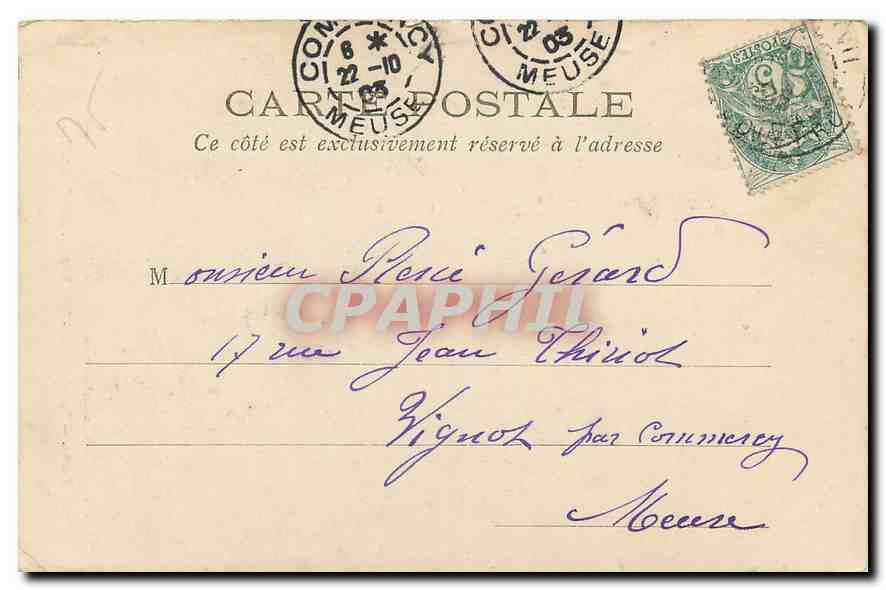 COM CY
6 *
22-10
03
MEUSE
CO
22
03
MEUSE
POSTES
5
CARTE POSTALE
Ce côté est exclusivement réservé à l'adresse
Monsieur René Gérard
CPAPHIL
17 rue Jean Thiriot
Vignot par Commercy
Meuse